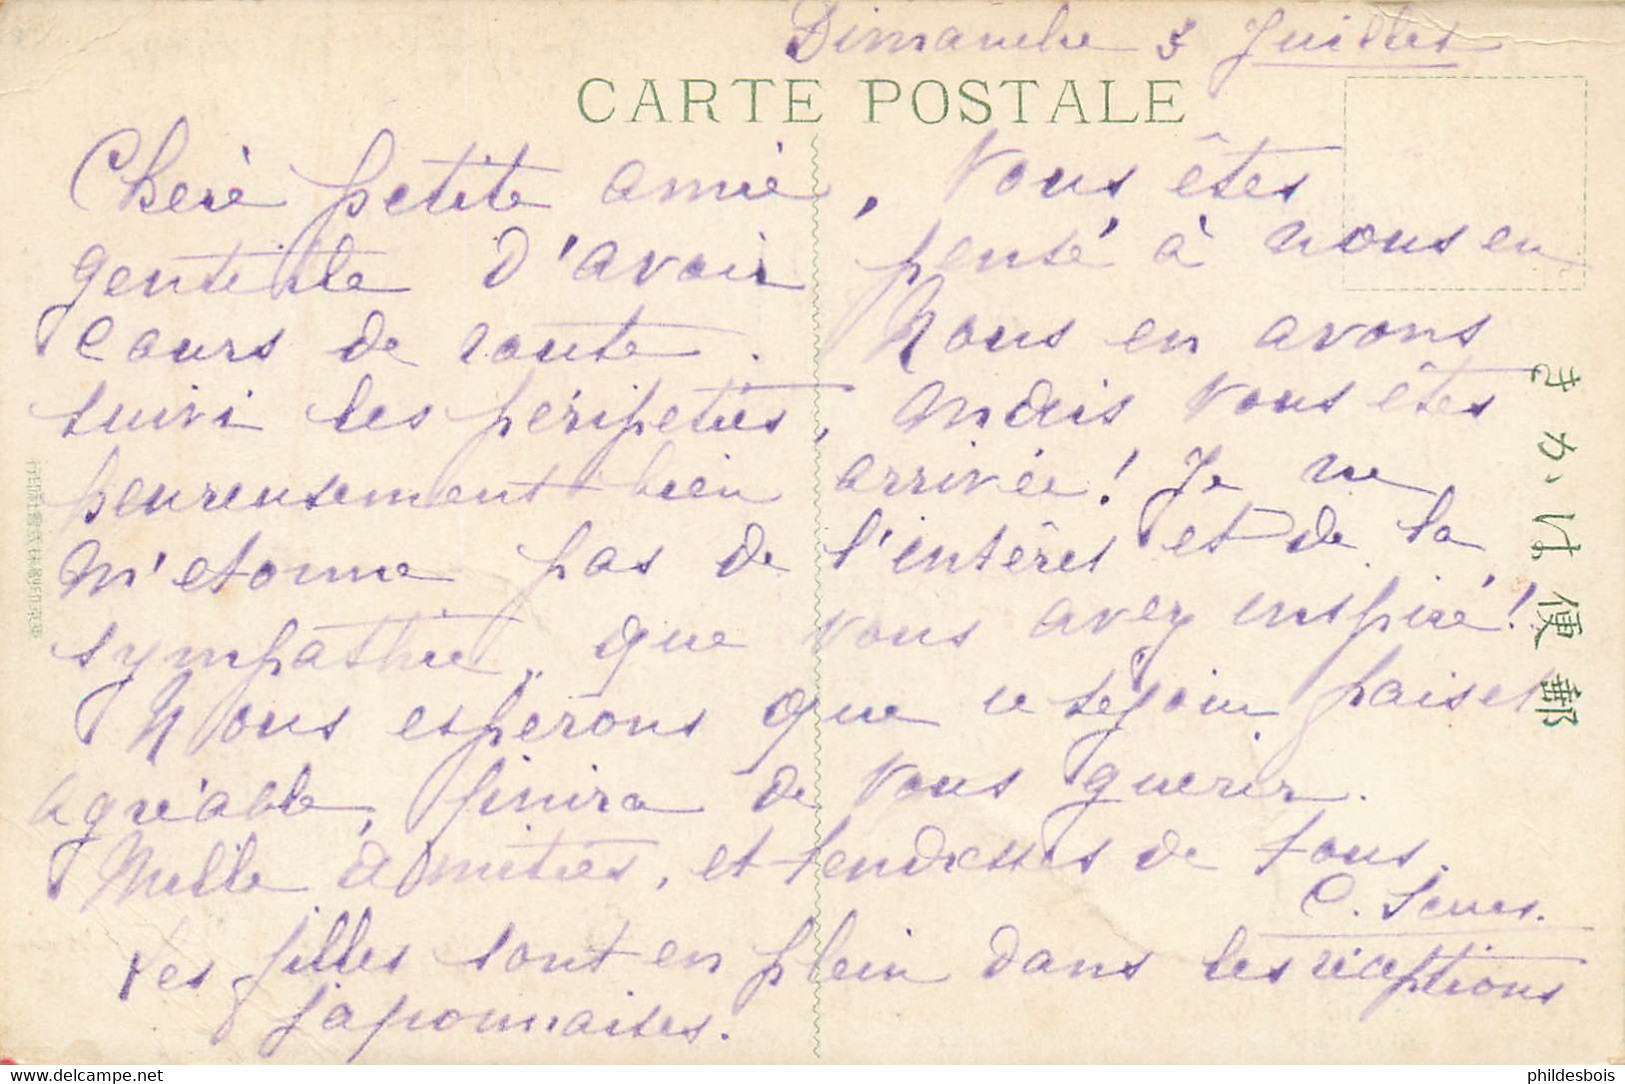 Dimanche 3 Juillet
CARTE POSTALE
Chère petite amie, Vous êtes
gentille d'avoir pensé à nous en
cours de route. Nous en avons
suivi les péripéties, mais vous êtes
heureusement bien arrivée! Je ne
m'etonne pas de l'intérêt et de la
sympathie, que vous avez inspiré!
Nous esperons que ce sejour paisible
agréable, finira de vous guerir.
Mille amitiés, et tendresses de tous.
C.
Les filles sont en plein dans les réceptions
japonnaises.
きかは便郵
phildesbois
www.delcampe.net